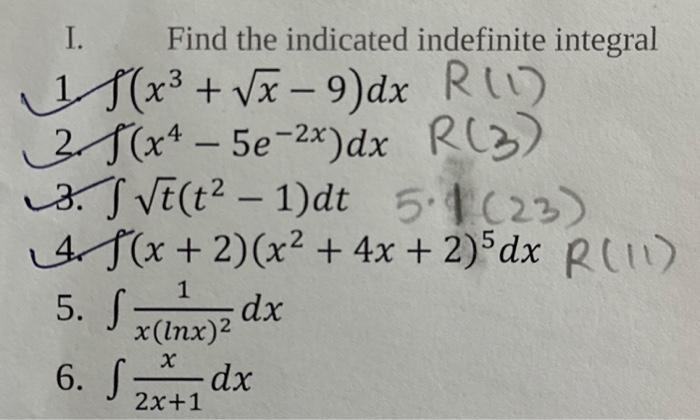 I. Find the indicated indefinite integral
1. ∫(x³ + √x − 9)dx R(1)
2. ∫(x⁴ − 5e⁻²ˣ)dx R(3)
3. ∫ √t(t² − 1)dt 5.1(23)
4. ∫(x + 2)(x² + 4x + 2)⁵dx R(11)
5. ∫ 1/x(lnx)² dx
6. ∫ x/2x+1 dx